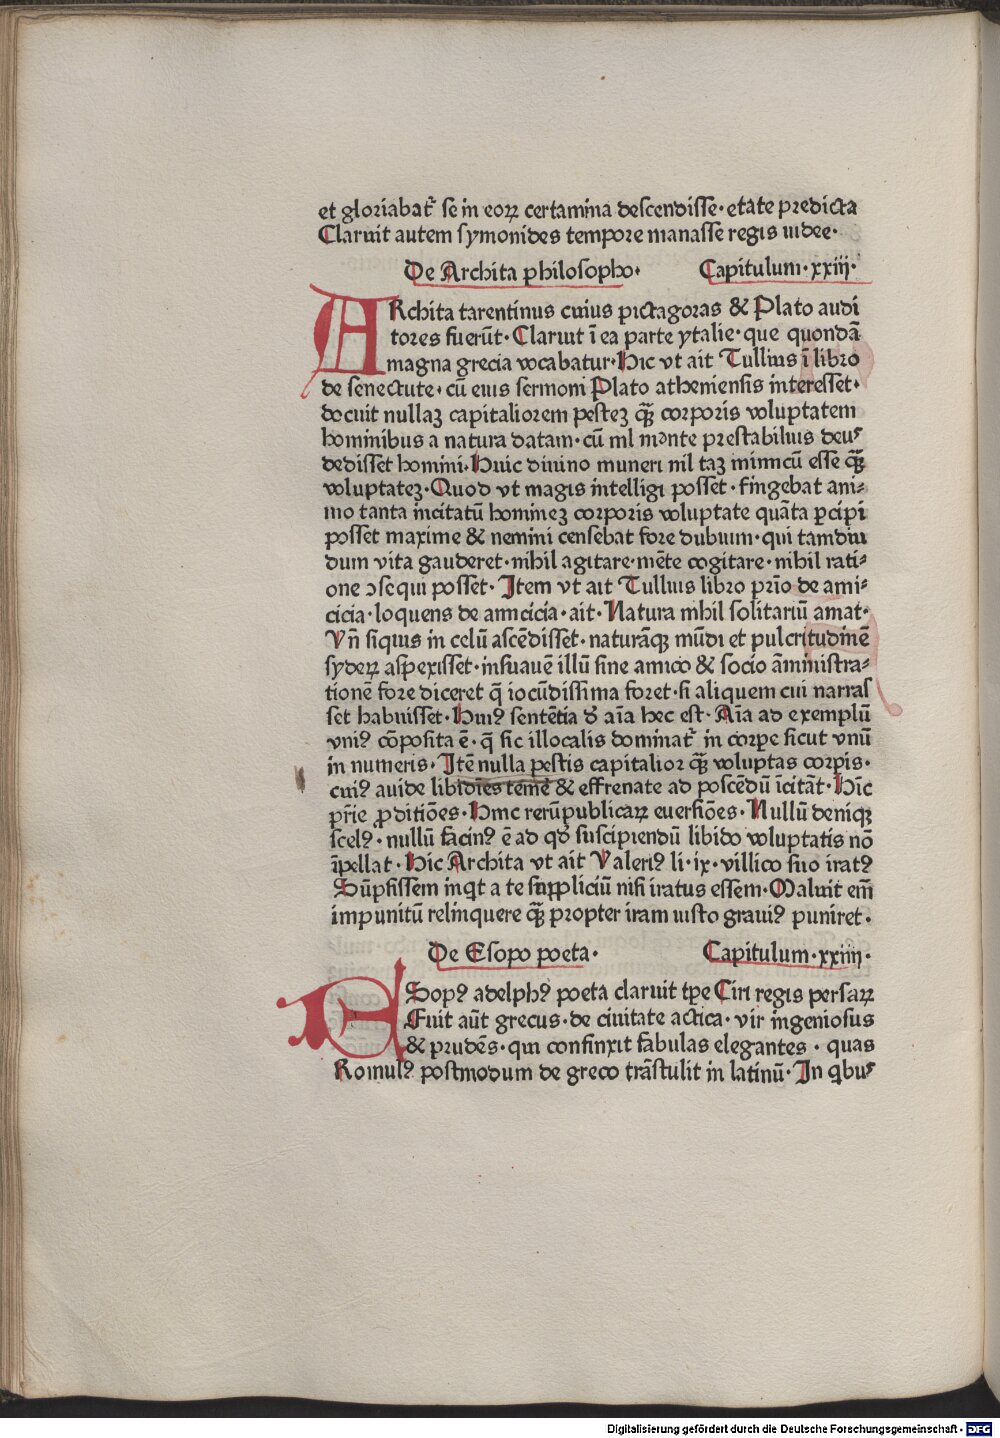 et gloriabat᷑ se in eoꝝ certamina descendisse·etate predicta
Claruit autem symonides tempore manasse regis iudee·
De Archita philosopho· Capitulum·xxiij·
ARchita tarentinus cuius pictagoras & Plato audi
tores fuerūt·Claruit ī ea parte ytalie·que quondā
magna grecia vocabatur·Hic vt ait Tullius ī libro
de senectute·cū eius sermoni Plato atheniensis interesset·
docuit nullaꝫ capitaliorem pesteꝫ qꝫ̄ corporis voluptatem
hominibus a natura datam·cū nil mente prestabilius deus
dedisset homini·Huic diuino muneri nil taꝫ inimicū esse qꝫ̄
voluptateꝫ·Quod vt magis intelligi posset·fingebat ani⸗
mo tanta incitatū homineꝫ corporis voluptate quāta ꝑcipi
posset maxime & nemini censebat fore dubium·qui tamdiu
dum vita gauderet·nihil agitare·mēte cogitare·nihil rati⸗
one ↄsequi posset·Item vt ait Tullius libro prīo de ami⸗
cicia·loquens de amicicia·ait·Natura nihil solitariū amat·
Vn̄ siquis in celū ascēdisset·naturāqꝫ mūdi et pulcritudinē
syderꝝ aspexisset·insuauē illū sine amico & socio āministra⸗
tionē fore diceret q̄ iocūdissima foret·si aliquem cui narras
set habuisset·Huiꝰ sentētia d̄ aīa hec est·Aīa ad exemplū
vniꝰ cōposita ē·q̄ sic illocalis dominat᷑ in corpe sicut vnū
in numeris·Itē nulla pestis capitalior qꝫ̄ voluptas corpis·
cuiꝰ auide libidīes temē & effrenate ad poscēdū īcitāt·Hīc
pr̄ie ꝓditiōes·Hinc rerūpublicaꝝ euersiōes·Nullū deniqꝫ
scelꝰ·nullū facinꝰ ē ad qd̄ suscipiendū libido voluptatis nō
īpellat·Hic Archita vt ait Valeriꝰ li·ix·villico suo iratꝰ
Sūpsissem inqt a te suppliciū nisi iratus essem·Maluit em̄
impunitū relinquere qꝫ̄ propter iram iusto grauiꝰ puniret·
De Esopo poeta· Capitulum·xxiiij·
ESopꝰ adelphꝰ poeta claruit tꝑe Ciri regis persaꝝ
Fuit aūt grecus·de ciuitate actica·vir ingeniosus
& prudēs·qui confinxit fabulas elegantes·quas
Romulꝰ postmodum de greco trāstulit in latinū·In qbus
Digitalisierung gefördert durch die Deutsche Forschungsgemeinschaft - DFG